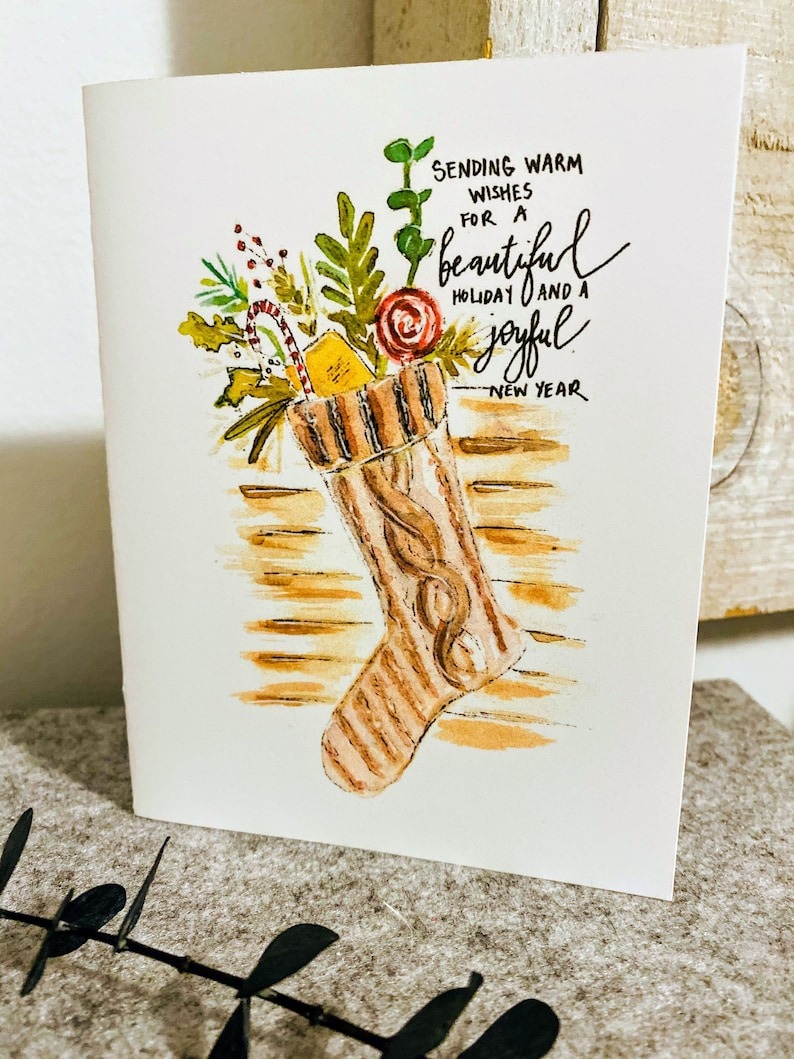 SENDING WARM
WISHES
FOR A
beautiful
HOLIDAY AND A
joyful
NEW YEAR